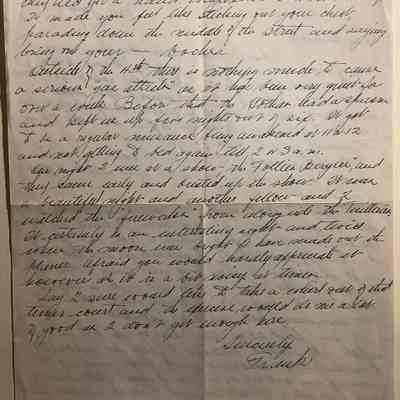 It made you feel like sticking out your chest,
parading down the middle of the street and saying
Outside of the 11th there is nothing made to cause
a serious gas attack as it has been very quiet for
over a week. Before that the Boches had a spasm
and kept us up five nights out of six. It got
to be a regular nuisance being awakened at 11 & 12
and not getting to bed again till 2 or 3 a.m.
One night I was at a show - the "Follies Bergere" and
they came early and busted up the show. It was
beautiful night and another fellow and I
watched the "fireworks" from along side the Tuileries.
It certainly is an interesting sight and twice
when the moon was bright I have made out the
planes. Afraid you would hardly appreciate it
however as it is a bit noisy at times.
Say I sure would like to take a out of that
tennis court and the exercise would do me a lot
of good as I don't get enough here.
Sincerely
Frank